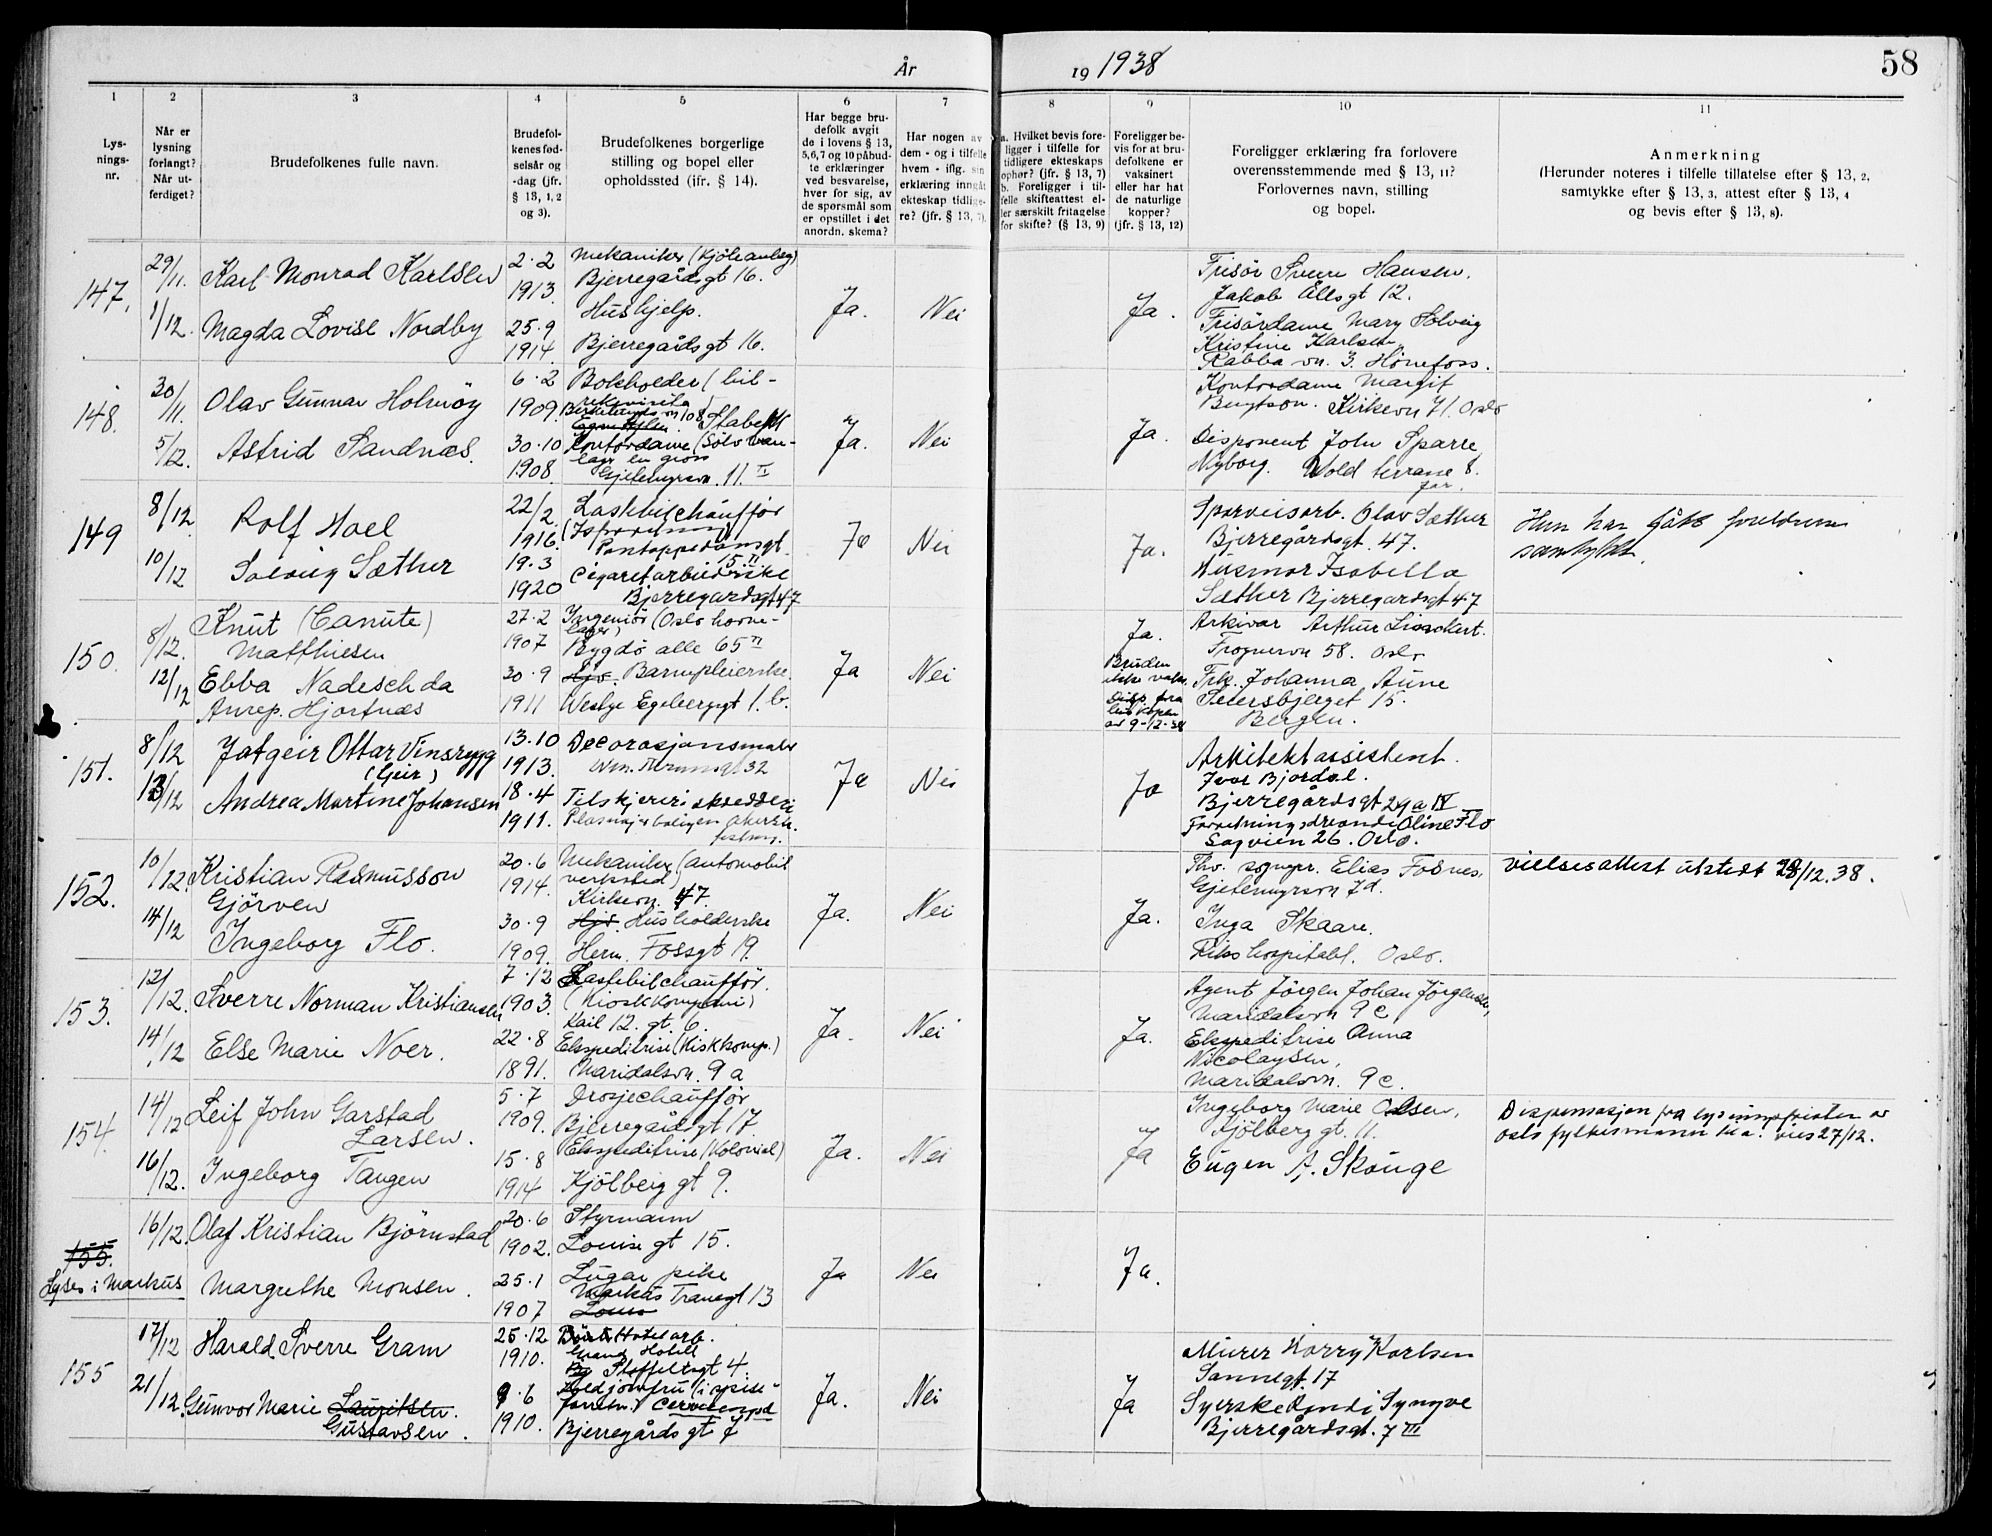 År
19 1938
58
1
2
3
4
5
6
7
8
9
10
11
Lys-
nings-
nr.
Når er
lysning
forlangt?
Når ut-
ferdiget?
Brudefolkenes fulle navn.
Brudefol-
kenes fød-
selsår og
-dag (jfr.
§ 13, 1, 2
og 3).
Brudefolkenes borgerlige
stilling og bopel eller
opholdssted (ifr. § 14).
Har begge bru-
defolk avgit
de i lovens § 13,
5,6,7 og 10 påbud-
te erklæringer
ved besvarelse,
hver for sig, av
de spørsmål som
er opstillet i det
anordn. skema?
Har nogen av
dem - og i tilfelle
hvem - iflg. sin
erklæring inngått
ekteskap tidlige-
re? (jfr. § 13, 7).
a. Hvilket bevis fore-
ligger i tilfelle for
tidligere ekteskaps
ophør? (jfr. § 13, 7)
b. Foreligger i til-
felle skifteattest el-
ler særskilt fritagelse
for skifte? (§ 13, 9)
Foreligger be-
vis for at bru-
defolkene er
vaksinert
eller har hat
de naturlige
kopper?
(jfr. § 13, 12)
Foreligger erklæring fra forlovere
overensstemmende med § 13, 11?
Forlovernes navn, stilling
og bopel.
Anmerkning
(Herunder noteres i tilfelle tillatelse efter § 13, 2,
samtykke efter § 13, 3, attest efter § 13, 4
og bevis efter § 13, 8).
147.
29/11.
1/12.
Karl Monrad Karlsen
Magda Lovise Nordby
2.2
1913.
25.9
1914.
Mekaniker (Kjøleanlæg)
Bjerregårdsgt 16.
Hushjelp.
Bjerregårdsgt 16.
Ja.
Nei
Ja.
Frisør Sverre Hansen.
Jakob Ålls gt 12.
Frisørdame Mary Solveig
Kristine Karlsen
Rabba vn. 3. Hønefoss.
148.
30/11.
5/12.
Olav Gunnar Holmøy
Astrid Sandnæs.
6.2
1909.
30.10
1908.
Bokholder (bil-
rekvisita)
Stabekk
Kontordame (Sølvvare-
lager en gros
Gjetemyrsvn. 11 II
Ja.
Nei
Ja.
Kontordame Margit
Bengtson. Kirkevn 71. Oslo
Disponent John Sparre
Nyborg. Wold terrasse 8.
far.
149
8/12.
10/12
Rolf Hoel
Solveig Sæther
22/2.
1916.
19.3
1920
Lastebilchauffør
Pontoppedansgt.
15. II
Cigaretarbeiderske
Bjerregardsgt 47
Ja
Nei
Ja.
Sporveisarb. Olav Sæther
Bjerregårdsgt. 47.
Husmor Isabella
Sæther Bjerregardsgt 47
Hun har fått foreldrenes
samtykke.
150.
8/12.
12/12
Knut (Canute)
Matthiesen
Ebba Nadeschda
Anrep. Hjortnæs
27.2
1907
30.9
1911
Ingeniør (Oslo havne-
lager)
Bygdø alle 65 II
Hjv. Barnepleierske.
Westye Egebergsgt 1. b.
Ja
Nei
Ja.
Bruden
ikke vaks.
av 9-12-38
Arkivar Arthur
Frognervn 58. Oslo
Frk. Johanna Aune
Bergen.
151.
8/12
13/12
Jatgeir Ottar Vinsrygg
(Geir)
Andrea Martine Johansen
13.10
1913.
18.4
1911.
Decorasjonsmaler
32
Tilskjerer i skredderi
Ja
Nei
Ja
Arkitektassistent.
Ivar Bjordal.
Bjerregårdsgt 29a IV
Oline Flo
Sagveien 26. Oslo.
152.
10/12.
14/12
Kristian Rasmusson
Gjörven
Ingeborg Flo.
20.6
1914.
30.9
1909.
Mekaniker (automobil
verksted)
Kirkevn. 47.
Hjv. Husholderske
Herm. Fossgt 19.
Ja.
Nei
Ja.
Fhv. sognepr. Elias Fosnes.
Gjetemyrsvn 7d.
Inga Skaare.
Rikshospitalet. Oslo.
Vielsesattest utstedt 28/12.38.
153.
12/12.
14/12
Sverre Norman Kristiansen
Else Marie Noer.
7.12
1903.
22.8
1891.
Lastebilchauffør.
(Kioskkompani)
Kail 12. gt. 6.
Ekspeditrise (Kiskkomp.)
Maridalsvn. 9 a
Ja.
Nei
Ja.
Agent Jörgen Johan Jörgensen,
Maridalsvn 9c
Ekspeditrise Anna
Nicolaysen,
Maridalsvn. 9c.
154.
14/12
16/12.
Leif John Garstad
Larsen.
Ingeborg Tangen
5.7
1909.
15.8
1914
Drosjechauffør
Bjerregårdsgt 17
Ekspeditrise (Kolonial)
Kjölberg gt 9.
Ja.
Nei
Ja
Ingeborg Marie Olsen,
Kjölberg gt. 11.
Eugen A. Skouge
Dispensasjon fra lysningsfristen av
Oslo fylkesmann bl.a. vies 27/12.
155.
Lyses i Markus
16/12.
Olaf Kristian Björnstad
Margrethe Monsen.
20.6
1902.
25.1
1907
Styrmann
Louise gt 15.
Lugar pike
Markus Tranegt 13
Louis
Ja
Nei
Ja.
155
17/12
21/12.
Harald Sverre Gram
Gunvor Marie Lauritsen.
Gustavsen.
25.12
1910.
9.6
1910.
Hotelarb.
Grand Hotell
Stoffeltsgt 4.
Bjerregårds gt 7
Ja.
Nei
Ja
Murer Harry Karlsen
Sannegt. 17
Syerske Randi Synnøve
Bjerregårdsgt. 7 III